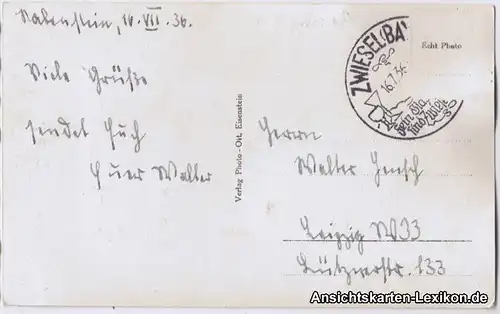 Rabenstein, 16. VII. 36.
Viele Grüße
sendet Euch
Euer Walter
Verlag Photo-Ott, Eisenstein
ZWIESEL(BAY
16.7.36
Echt Photo
Herrn
Walter Jensch
Leipzig W33
Lütznerstr. 133
Ansichtskarten-Lexikon.de